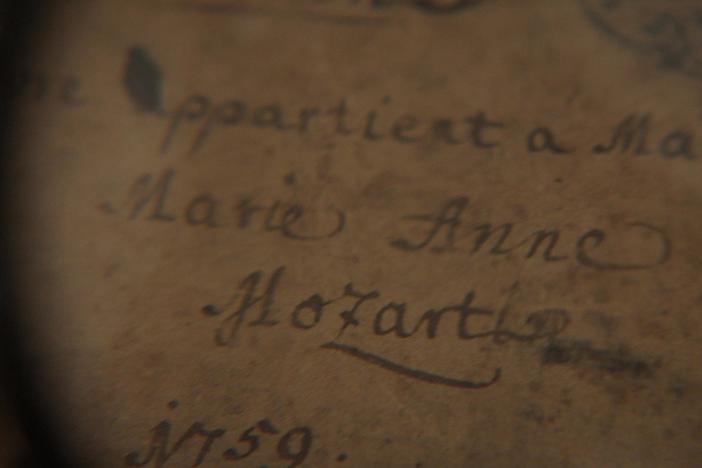 appartient a Ma
Marie Anne
Mozart
1759.